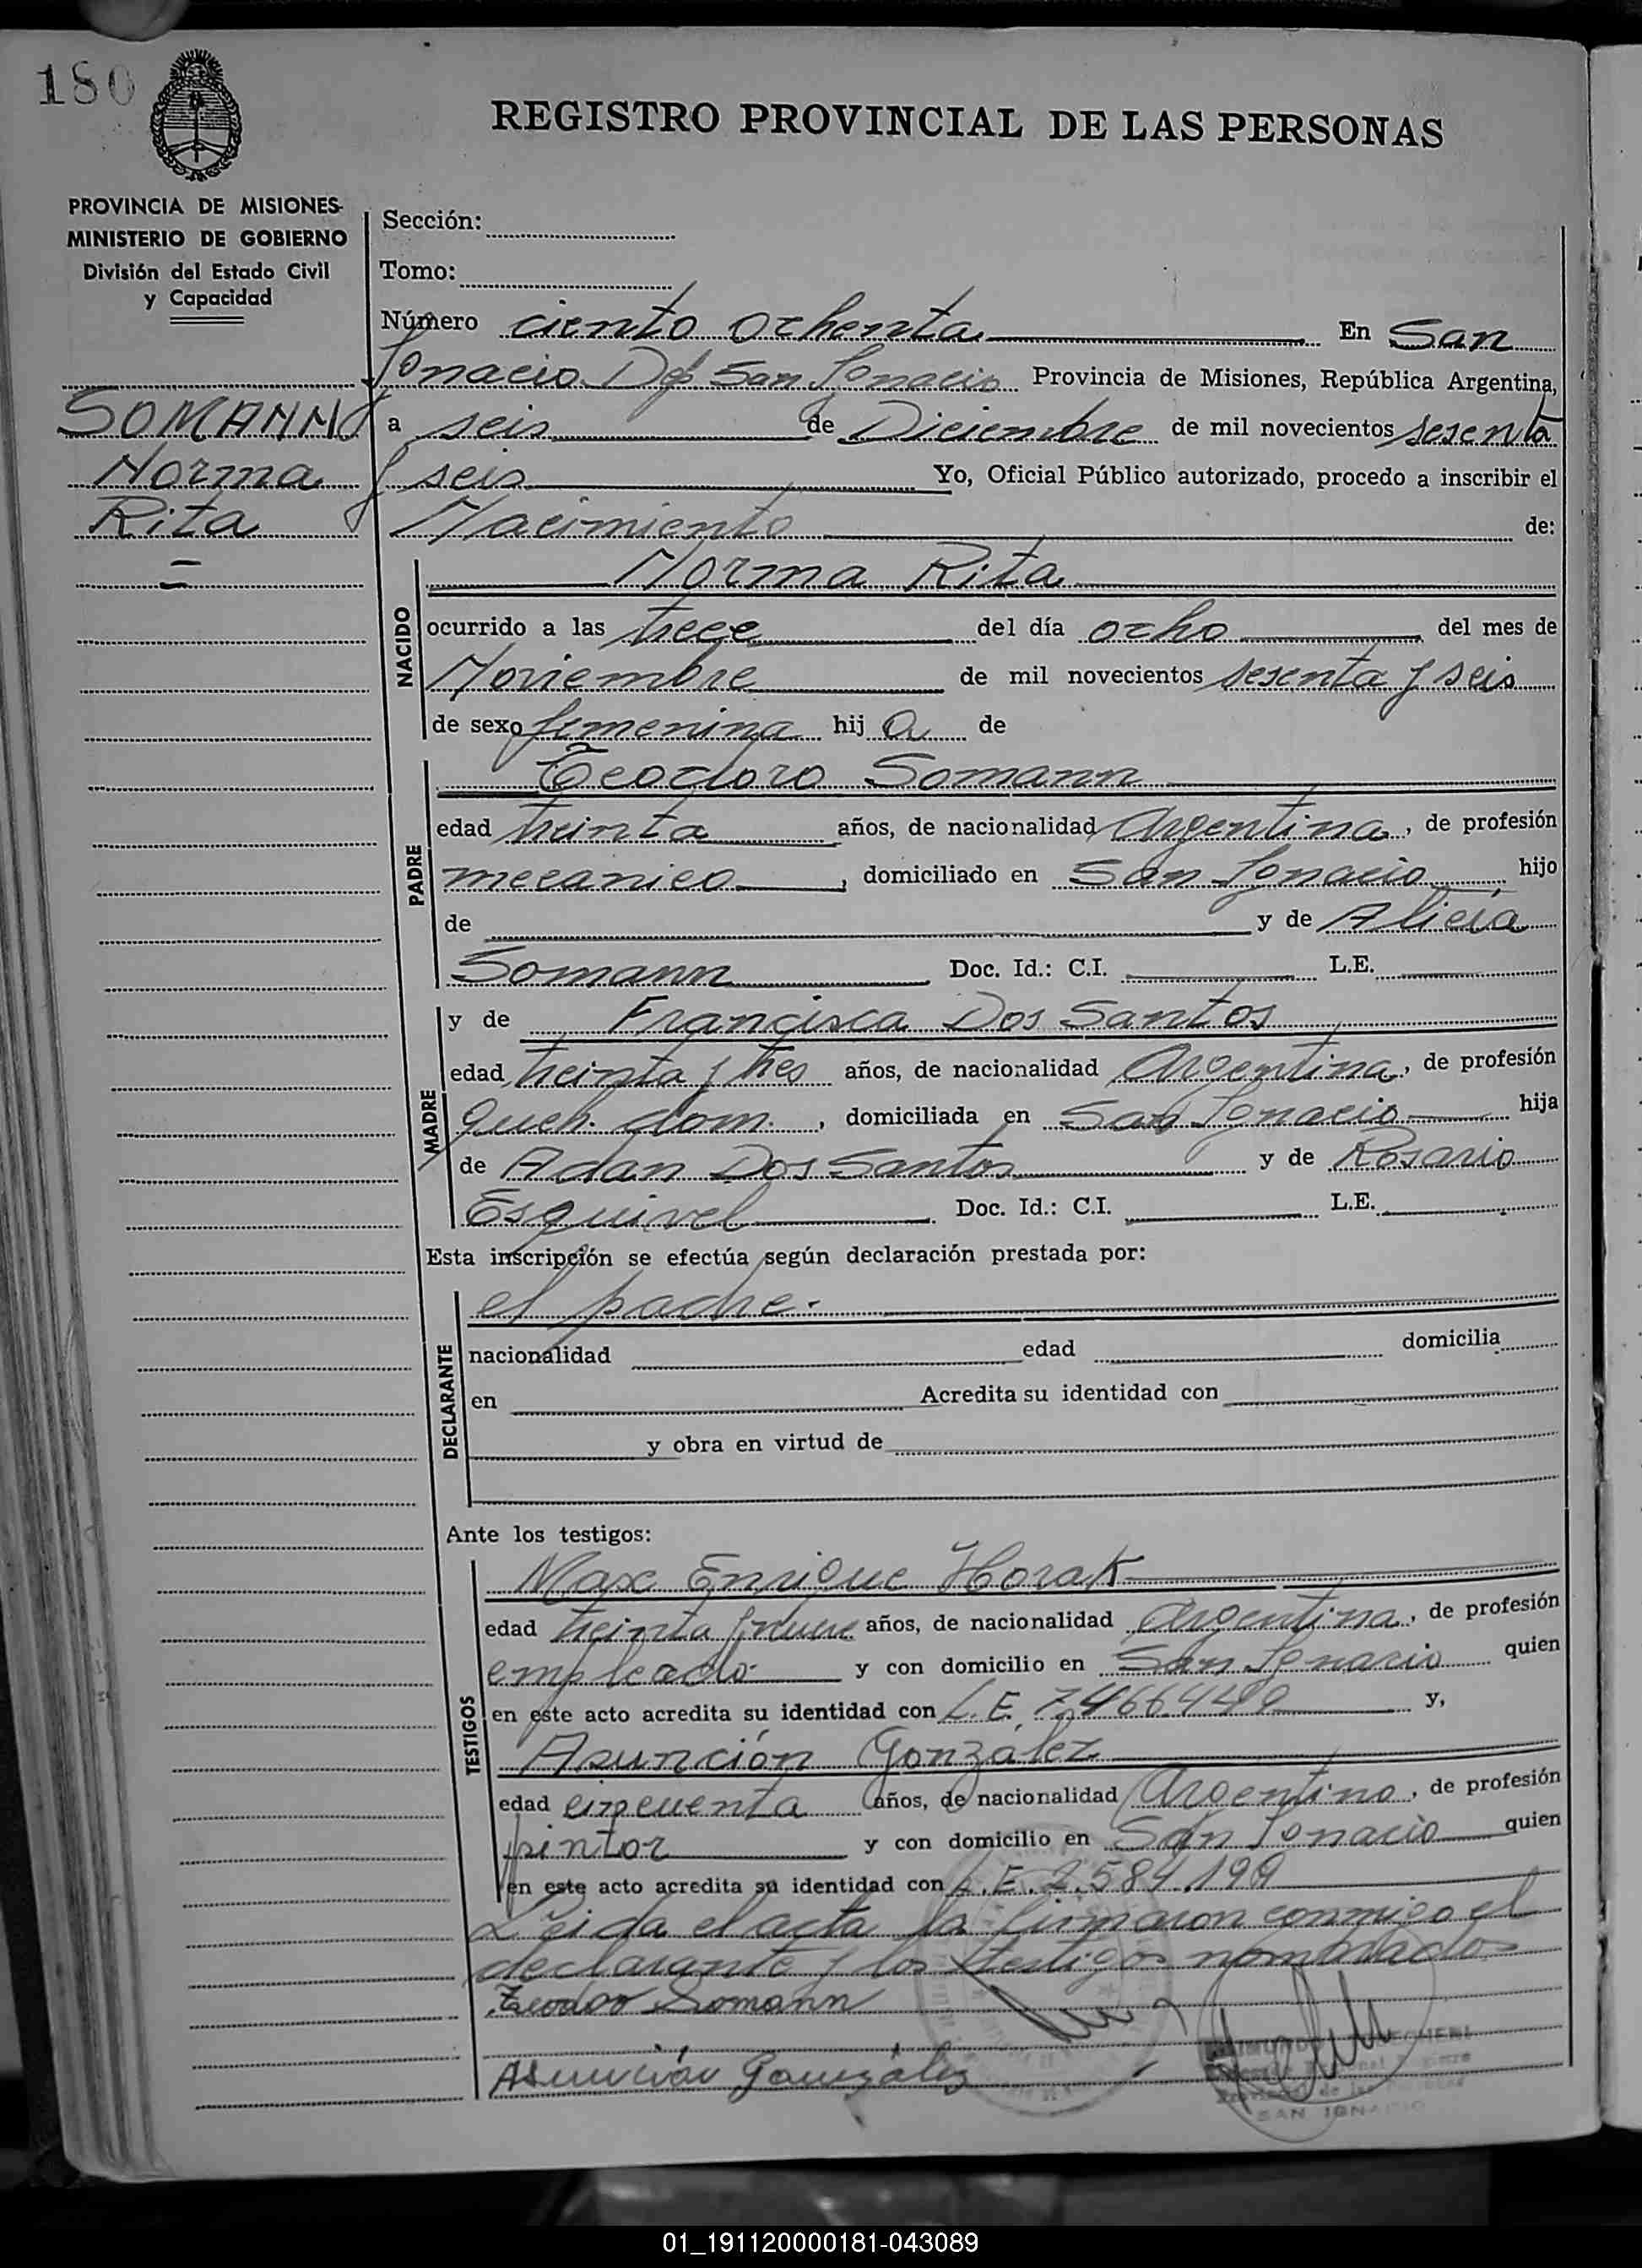 180
REGISTRO PROVINCIAL DE LAS PERSONAS
PROVINCIA DE MISIONES
MINISTERIO DE GOBIERNO
División del Estado Civil
y Capacidad
Sección:
Tomo:
Número ciento ochenta En San
Ignacio Dep San Ignacio Provincia de Misiones, República Argentina,
a seis de Diciembre de mil novecientos sesenta
y seis Yo, Oficial Público autorizado, procedo a inscribir el
Nacimiento de:
SOMANN
Norma
Rita
NACIDO
Norma Rita
ocurrido a las trece del día ocho del mes de
Noviembre de mil novecientos sesenta y seis
de sexo femenina hij a de
PADRE
Teodoro Somann
edad treinta años, de nacionalidad Argentina, de profesión
mecanico, domiciliado en San Ignacio hijo
de y de Alicia
Somann Doc. Id.: C.I. L.E.
MADRE
y de Francisca Dos Santos
edad treinta y tres años, de nacionalidad Argentina, de profesión
Queh. dom. , domiciliada en San Ignacio hija
de Adan Dos Santos y de Rosario
Esquivel Doc. Id.: C.I. L.E.
Esta inscripción se efectúa según declaración prestada por:
DECLARANTE
el padre.
nacionalidad edad domicilia
en Acredita su identidad con
y obra en virtud de
Ante los testigos:
TESTIGOS
Max Enrique Horak
edad treinta y nueve años, de nacionalidad Argentina, de profesión
empleado y con domicilio en San Ignacio quien
en este acto acredita su identidad con L.E. 7.466.449 y,
Asunción Gonzalez
edad cincuenta años, de nacionalidad Argentino, de profesión
pintor y con domicilio en San Ignacio quien
en este acto acredita su identidad con L.E. 2.584.199
Leida el acta la firmaron conmigo el
declarante y los testigos nombrados
Teodoro Somann
Asunción González
SAN IGNACIO
01_191120000181-043089